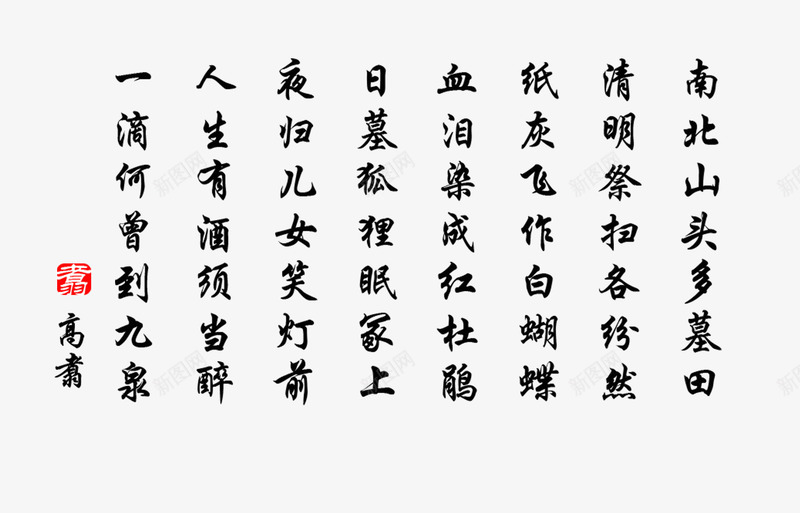 南北山头多墓田
清明祭扫各纷然
纸灰飞作白蝴蝶
血泪染成红杜鹃
日墓狐狸眠冢上
夜归儿女笑灯前
人生有酒须当醉
一滴何曾到九泉
高翥
翥
新图网